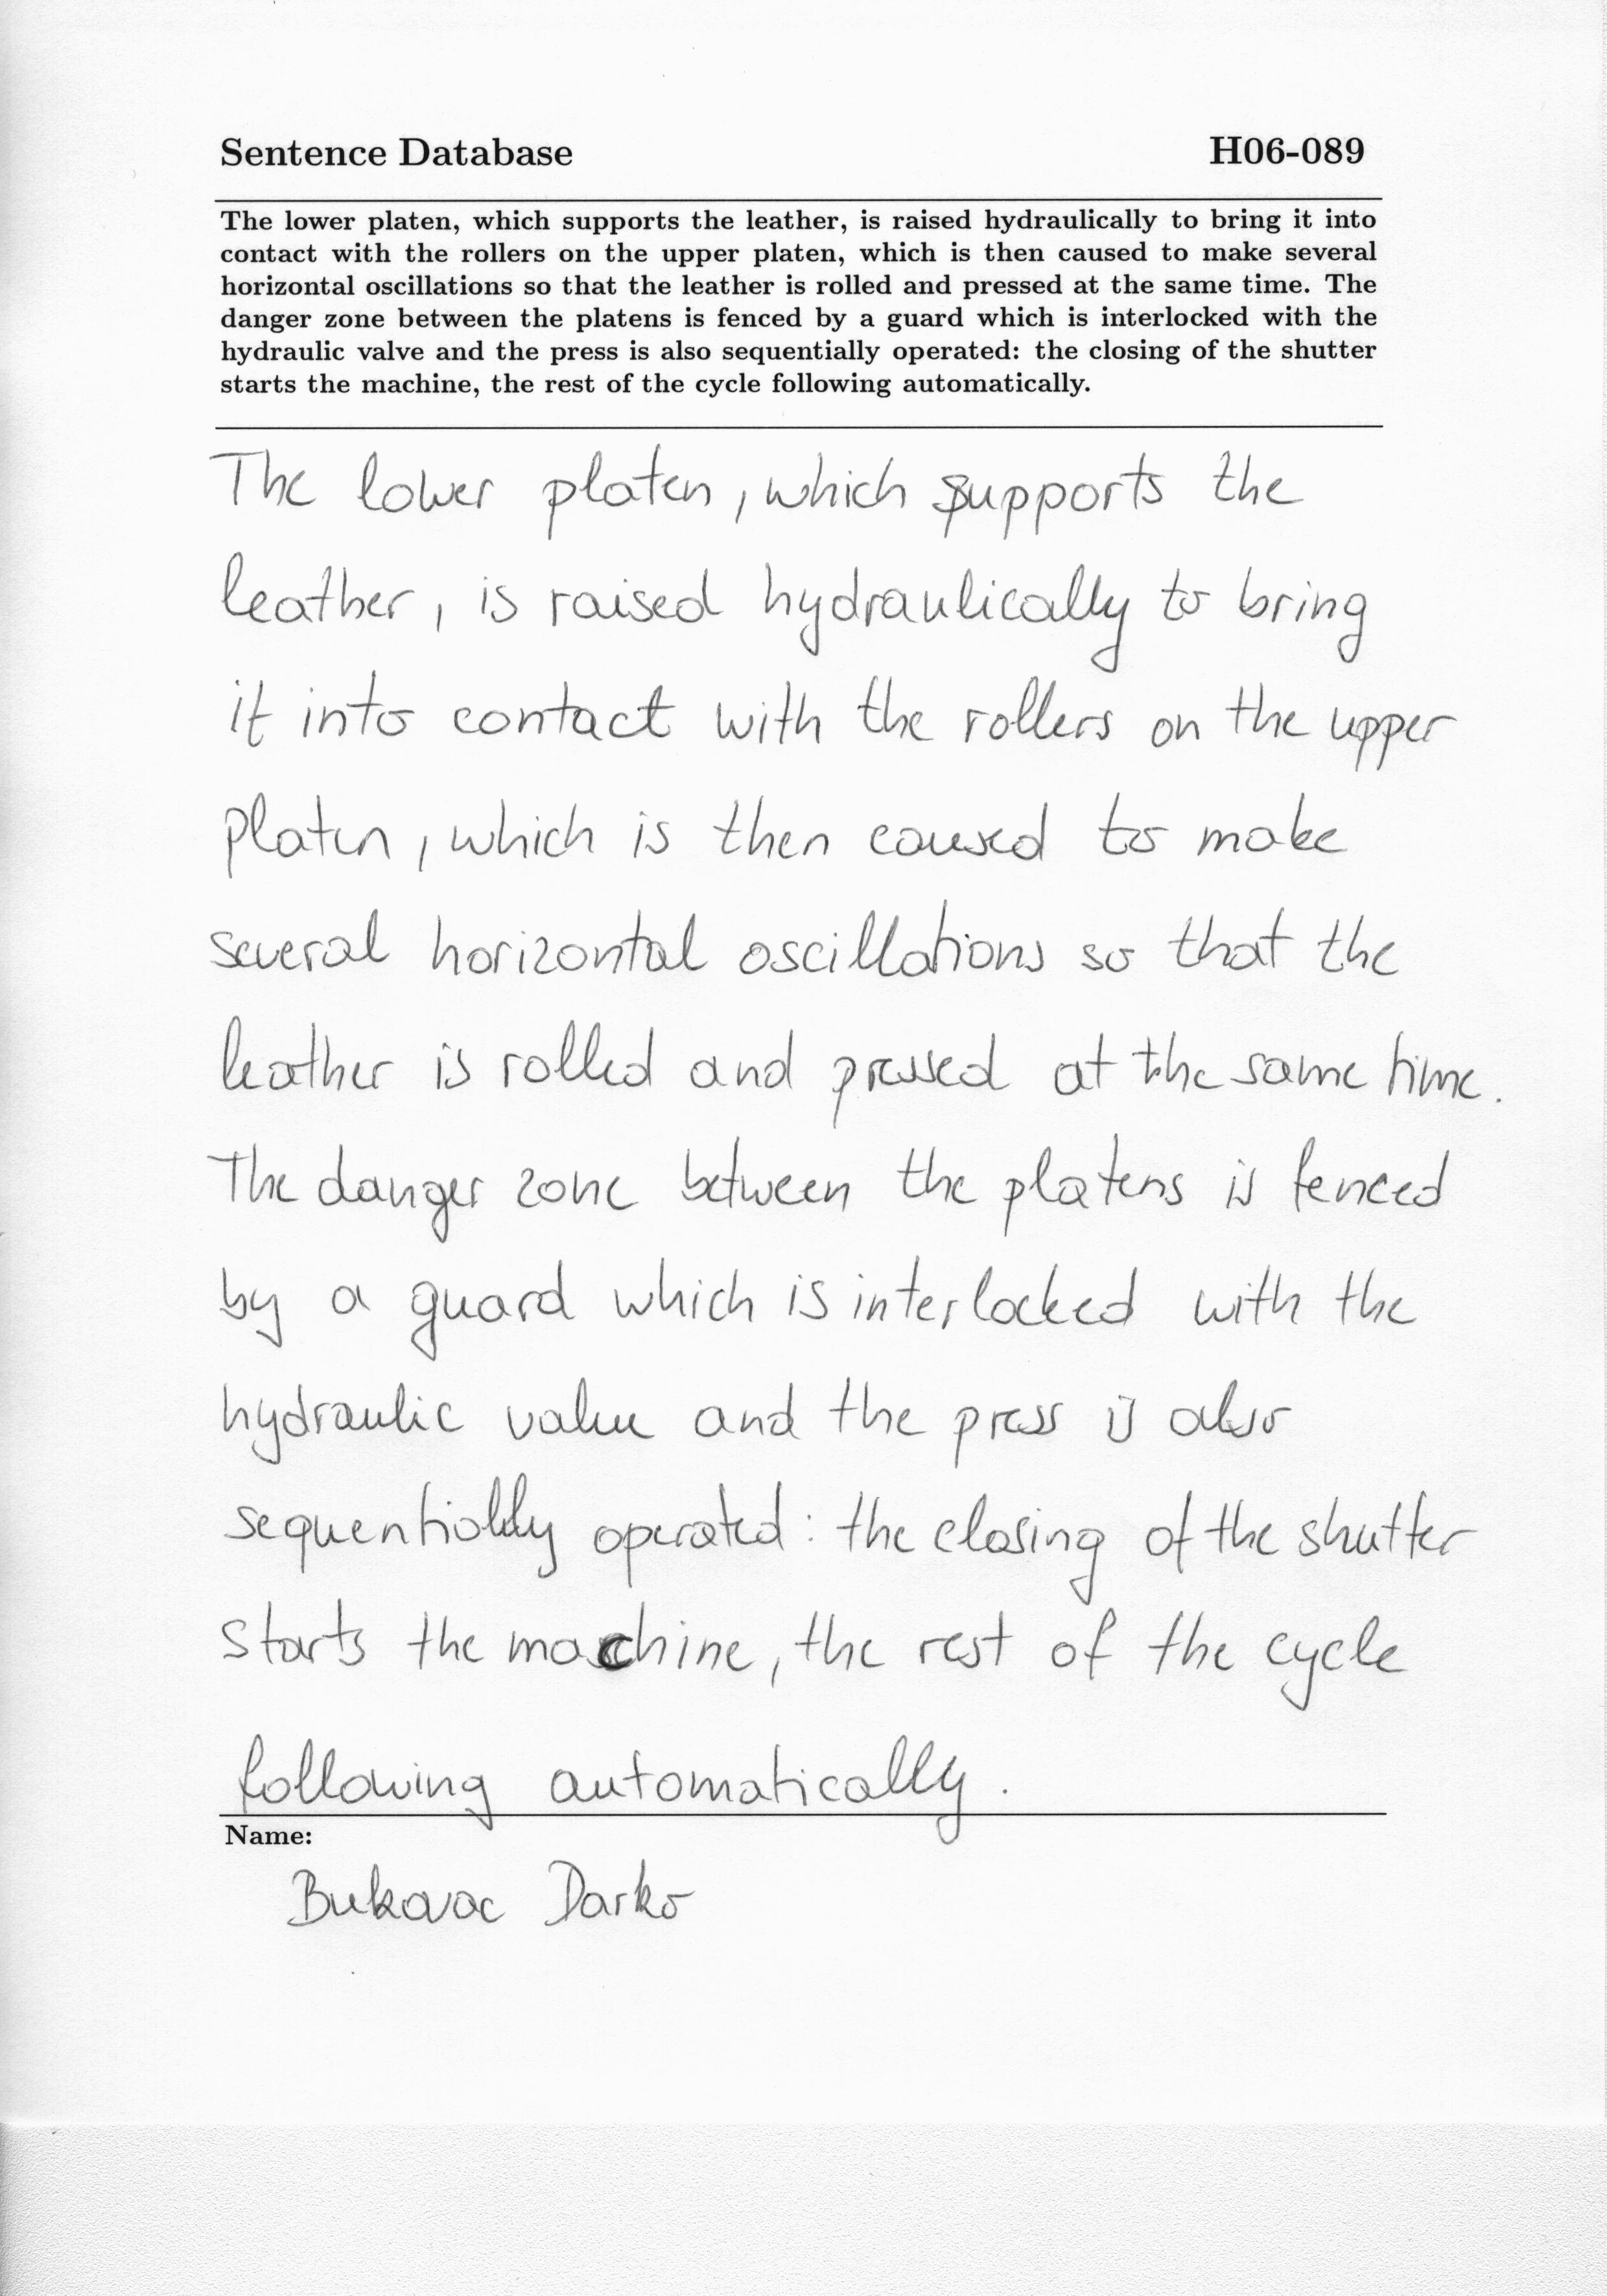 Sentence Database H06-089
The lower platen, which supports the leather, is raised hydraulically to bring it into
contact with the rollers on the upper platen, which is then caused to make several
horizontal oscillations so that the leather is rolled and pressed at the same time. The
danger zone between the platens is fenced by a guard which is interlocked with the
hydraulic valve and the press is also sequentially operated: the closing of the shutter
starts the machine, the rest of the cycle following automatically.
The lower platen, which supports the
leather, is raised hydraulically to bring
it into contact with the rollers on the upper
platen, which is then caused to make
several horizontal oscillations so that the
leather is rolled and pressed at the same time.
The danger zone between the platens is fenced
by a guard which is interlocked with the
hydraulic value and the press is also
sequentially operated: the closing of the shutter
starts the machine, the rest of the cycle
following automatically.
Name:
Bukovac Darko